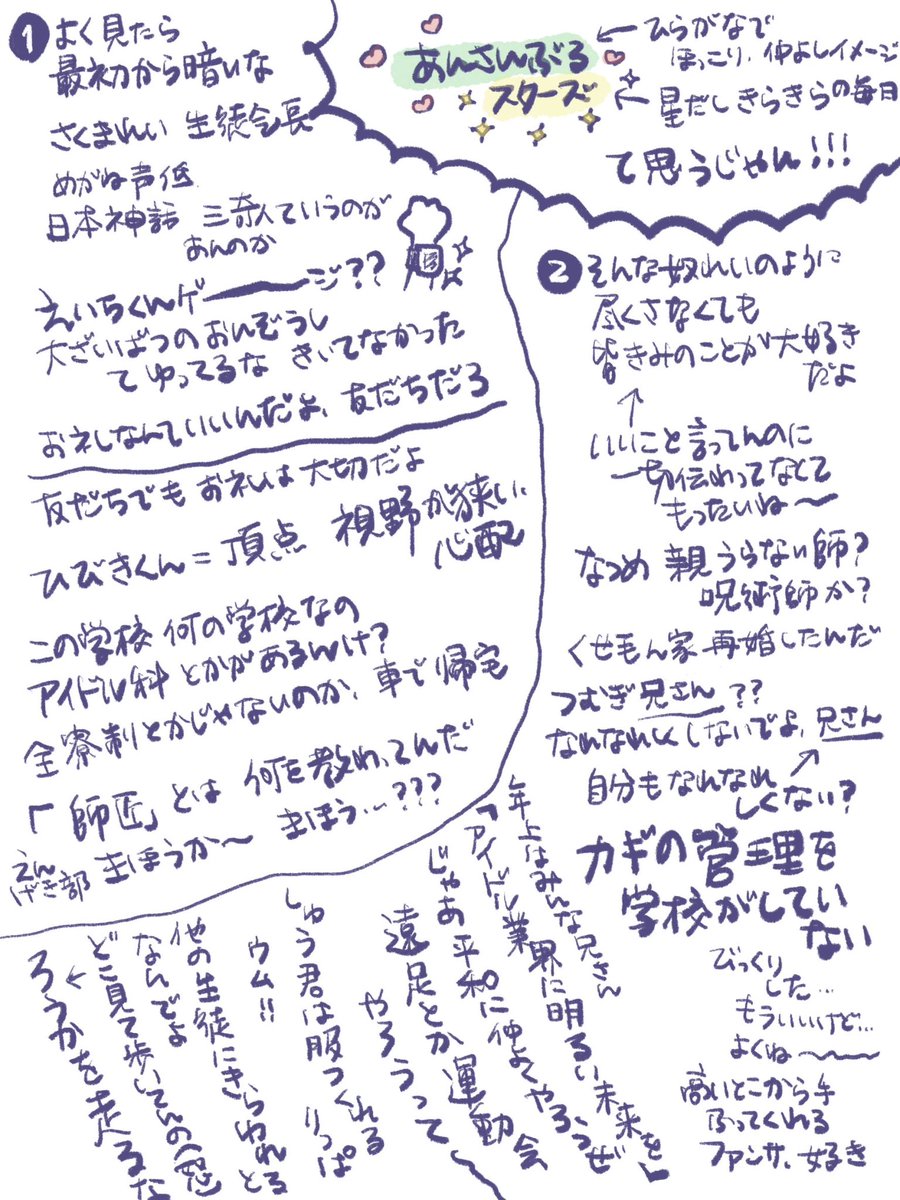 あんさんぶる
スターズ
←ひらがなで
ほっこり、仲よしイメージ
←星だしきらきらの毎日
て思うじゃん!!!
1 よく見たら
最初から暗いな
さくまれい 生徒会長
めがね声低
日本神話 三奇人ていうのが
あんのか
えいちくんゲーージ??
大ざいばつのおんぞうし
てゆってるな きいてなかった
お礼なんていいんだよ、友だちだろ
友だちでもお礼は大切だよ
ひびきくん=頂点 視野が狭い
心配
この学校 何の学校なの
アイドル科とかがあるんけ?
全寮制とかじゃないのか、車で帰宅
「師匠」とは 何を教わってんだ
えん
げき部 まほうか〜 まほう…???
2 そんな奴れいのように
尽くさなくても
皆きみのことが大好き
だよ
↑
いいこと言ってんのに
一切伝わってなくて
もったいね〜
なつめ 親うらない師?
呪術師か?
くせもん家 再婚したんだ
つむぎ兄さん??
なれなれしくしないでよ、兄さん
自分もなれなれ
しくない?
カギの管理を
学校がしてい
ない
びっくり
した…
もういいけど…
よくね〜
高いとこから手
ふってくれる
ファンサ、好き
年上はみんな兄さん
「アイドル業界に明るい未来を」
じゃあ平和に仲よくやろうぜ
遠足とか運動会
やろうって〜
しゅう君は服つくれる
りっぱ
ウム!!
他の生徒にきらわれとる
なんでよ
どこ見て歩いてんの(怒)
←ろうかを走るな